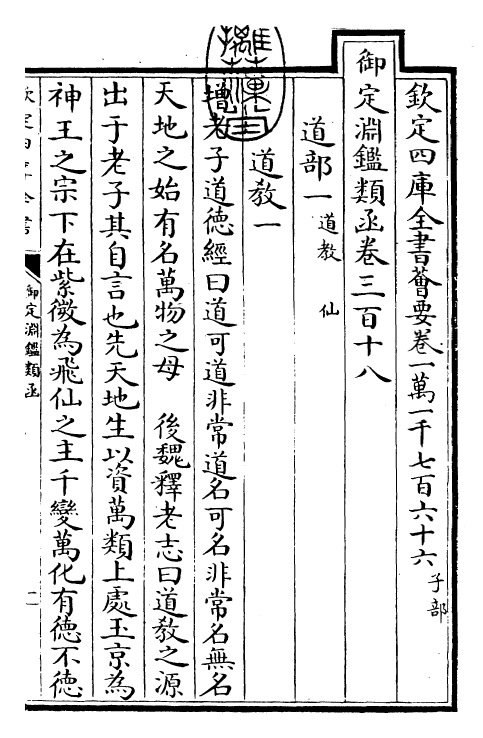 欽定四庫全書薈要卷一萬一千七百六十六 子部
御定淵鑑類函卷三百十八
道部一 道教 仙
道教一
增老子道德經曰道可道非常道名可名非常名無名
天地之始有名萬物之母 後魏釋老志曰道教之源
出于老子其自言也先天地生以資萬類上處玉京為
神王之宗下在紫微為飛仙之主千變萬化有德不德
欽定四庫全書
御定淵鑑類函